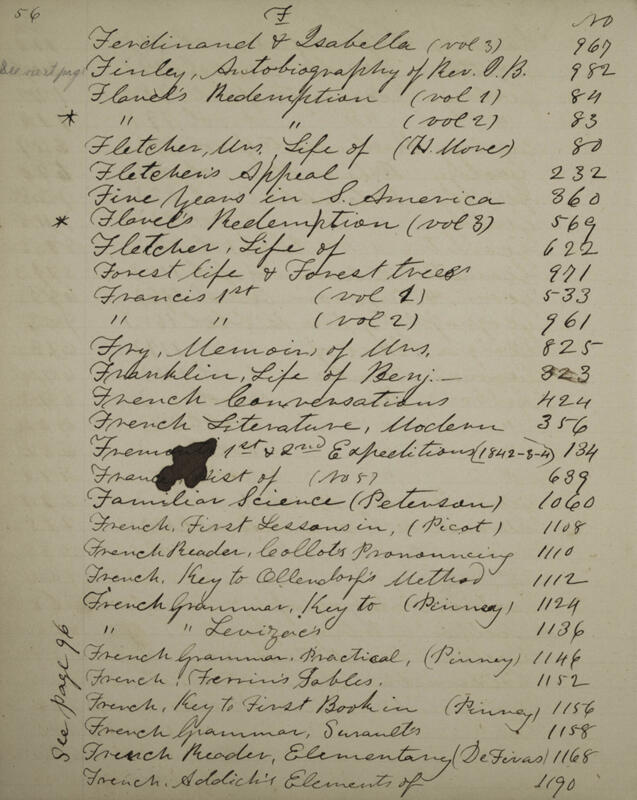 56 F No
Ferdinand & Isabella (vol 3) 967
See next pag Finley, Autobiography of Rev. J. B. 982
Flavel's Redemption (vol 1) 84
* " " (vol 2) 83
Fletcher, Mrs, Life of (H. Moves) 80
Fletcher's Appeal 232
Five Years in S. America 360
* Flavel's Redemption (vol 3) 569
Fletcher, Life of 622
Forest life & Forest trees 971
Francis 1st (vol 1) 533
" " (vol 2) 961
Fry, Memoir, of Mrs. 825
Franklin, Life of Benj. 323
French Conversations 424
French Literature, Modern 356
1st & 2nd Expeditions (1842-3-4) 134
Hist of 639
Familiar Science (Peterson) 1060
French, First Lessons in, (Picot) 1108
French Reader, Collot's Pronouncing 1110
French, Key to Ollendorf's Method 1112
French Grammar, Key to (Pinney) 1124
" " Levizac's 1136
French Grammar, Practical, (Pinney) 1146
French, Perrin's Fables. 1152
French, Key to First Book in (Pinney) 1156
French Grammar, Surault's 1158
French Reader, Elementary (DeFivas) 1168
French, Addick's Elements of 1190
See page 96